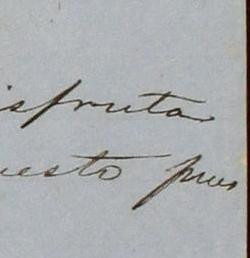 isfruta
uesto pues